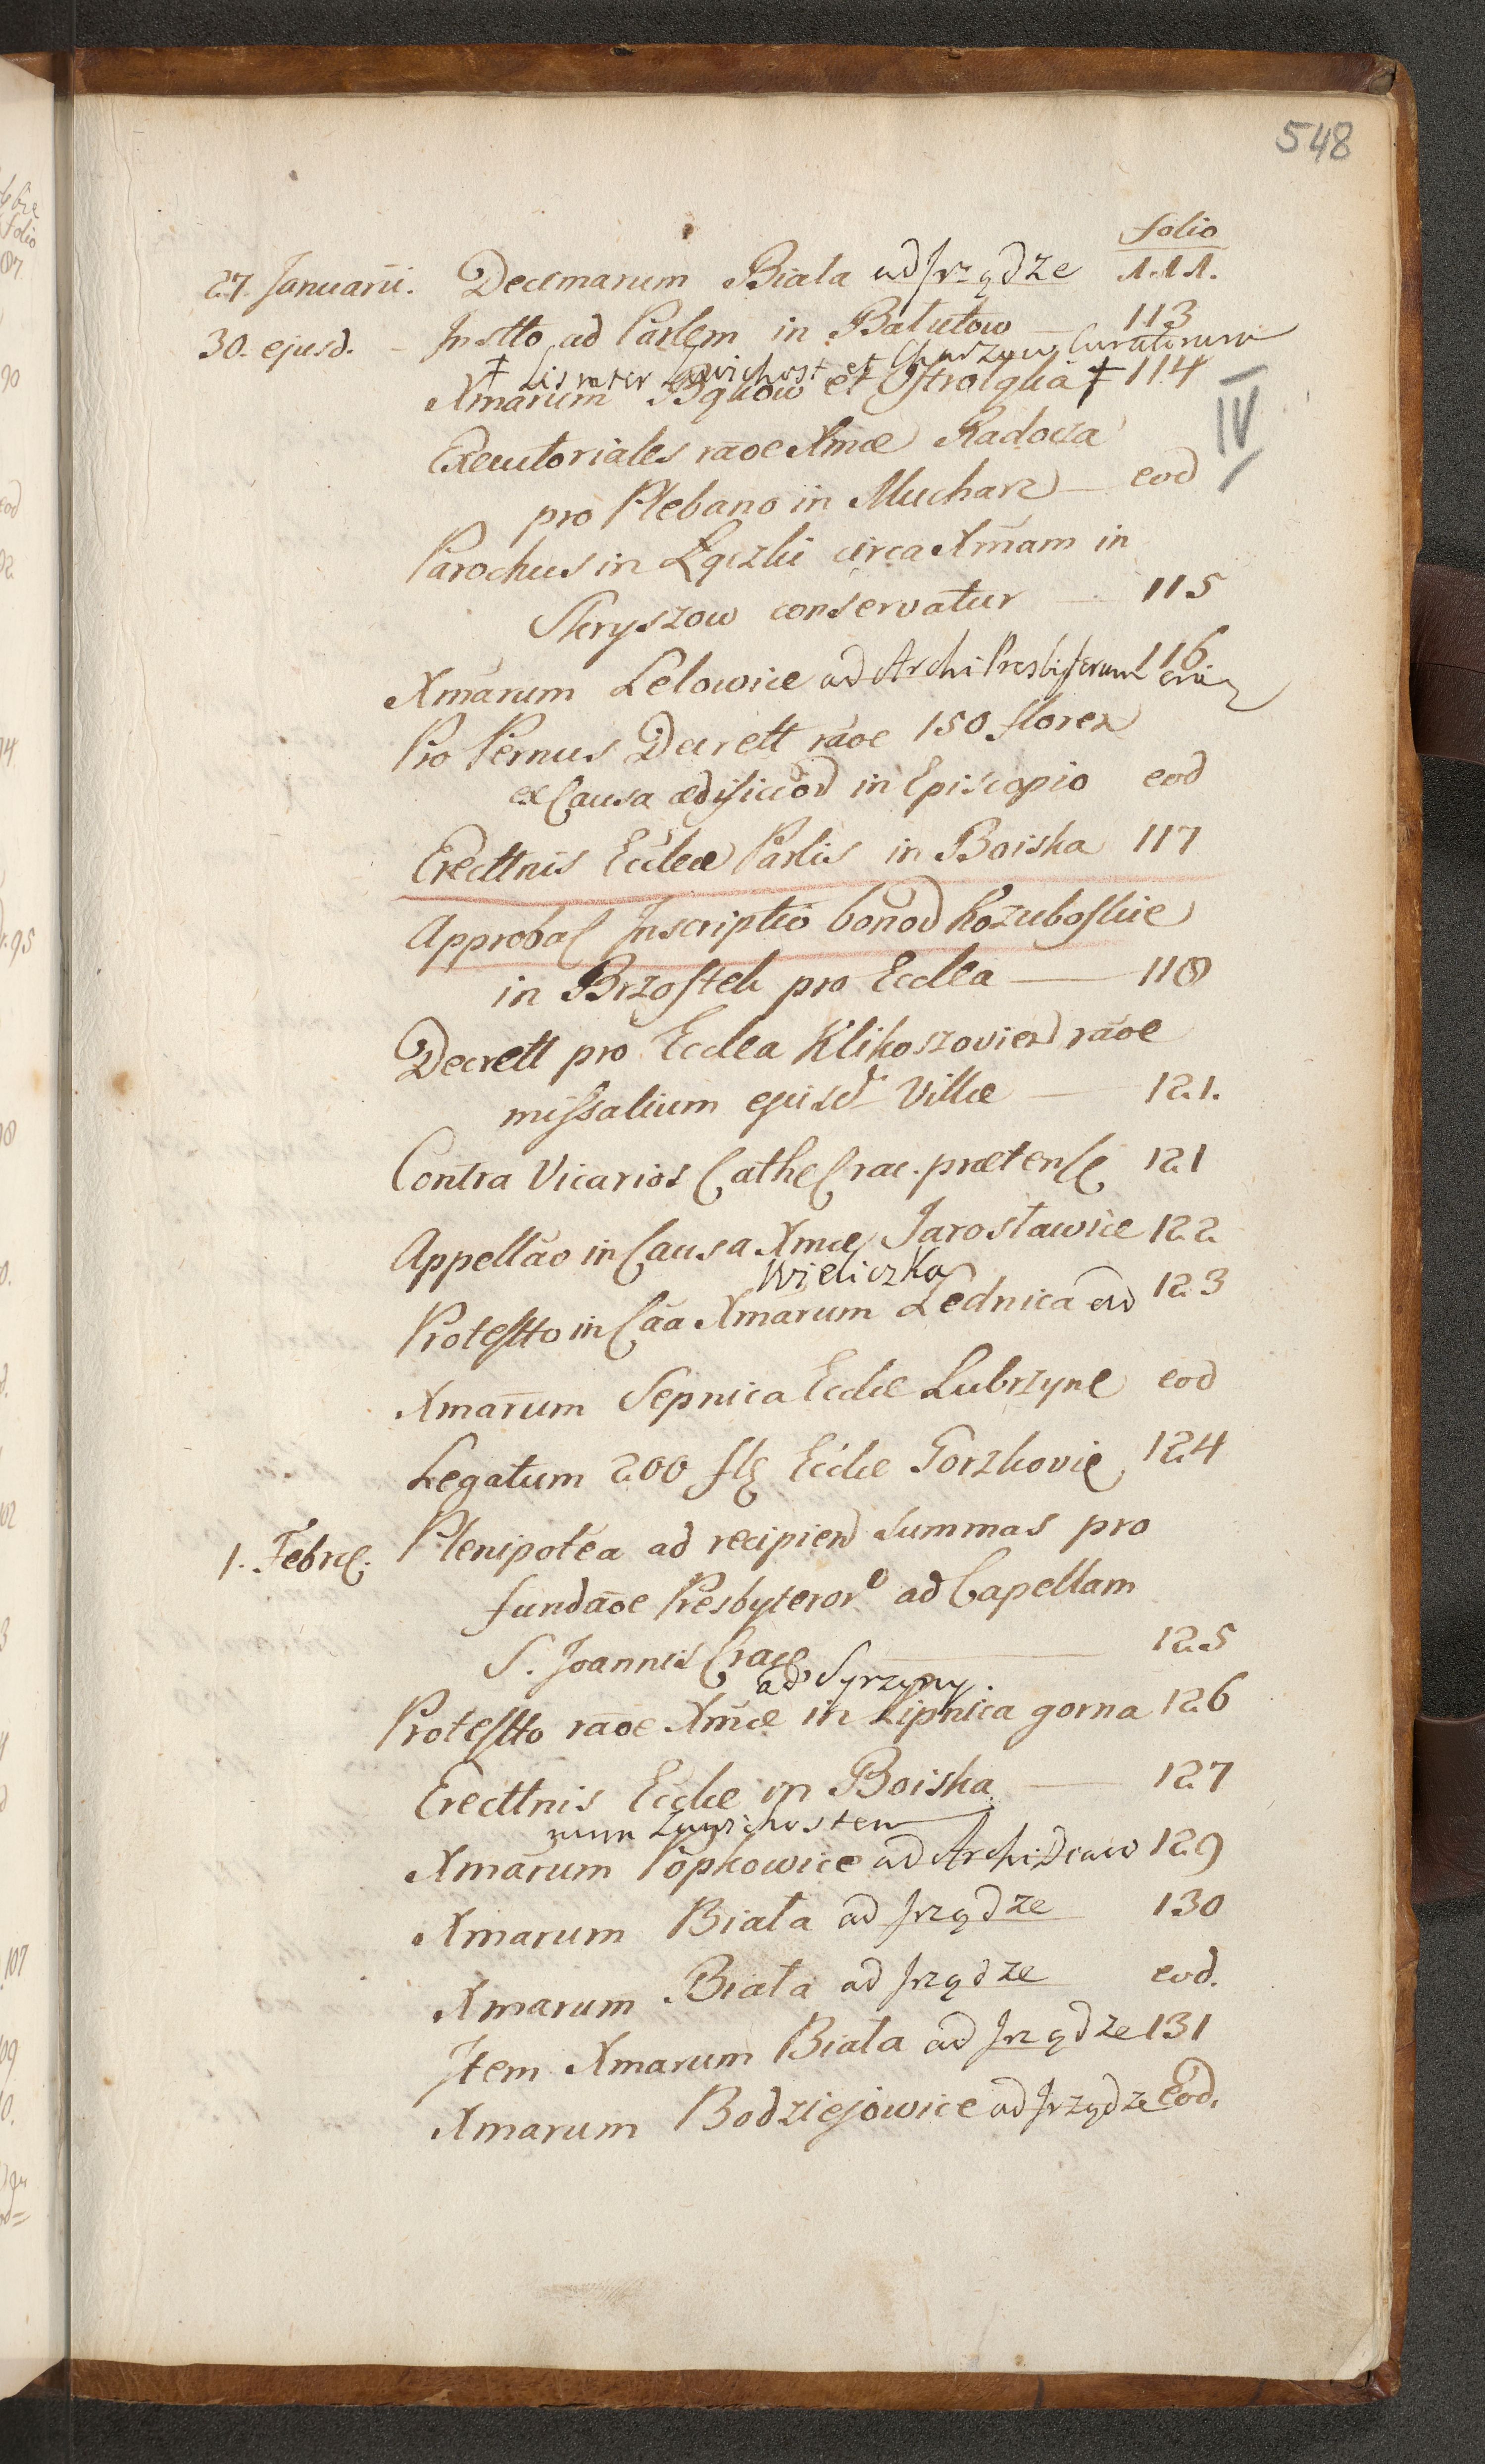 548
folio
27. Januarii. Decimarum Biała ad Jrządze 111.
30. ejusd. - Instto ad Parlem in Batutow 113
† Lis inter Zawichost et Charzow Curatorum
Xmarum Bąkow et Ostrołęka † 114
IV
Executoriales raõe Xmæ Radocza
pro Plebano in Mucharz — eod
Parochus in Łączki circa Xmam in
Skryszow conservatur — 115
Xmarum Lelowice ad Archi Presbiterum 116
Pro Pernus Decrett raõe 150 floren
ex Causa ædificiod in Episcopio eod
Erecttnis Ecclæ Parlis in Boiska 117
Approba Inscriptio bonod Kozuboskie
in Brzostek pro Ecclea — 118
Decrett pro Ecclea Klikoszovien raõe
missalium ejusd Villæ — 121.
Contra Vicarios Cathedrac. prætens 121
Appellaõ in Causa Xmæ Jarosławice 122
Wieliczka
Protestto in Caã Xmarum Lednica ad 123
Xmarum Sepnica Ecclæ Lubrzyne eod
Legatum 200 fl Ecclæ Gorzkovie 124
1. Febr. Plenipotea ad recipien summas pro
fundaõe Presbyteror ad Capellam
S. Joannis Crac — 125
ad Syrzyny
Protestto raõe Xmæ in Lipnica gorna 126
Erecttnis Ecclæ in Boiska — 127
num Zawichosten
Xmarum Popkowice ad Archidiaco 129
Xmarum Biała ad Jrządze 130
Xmarum Biała ad Jrządze eod.
Item Xmarum Biała ad Jrządze 131
Xmarum Bodziejowice ad Jrządze Eod.